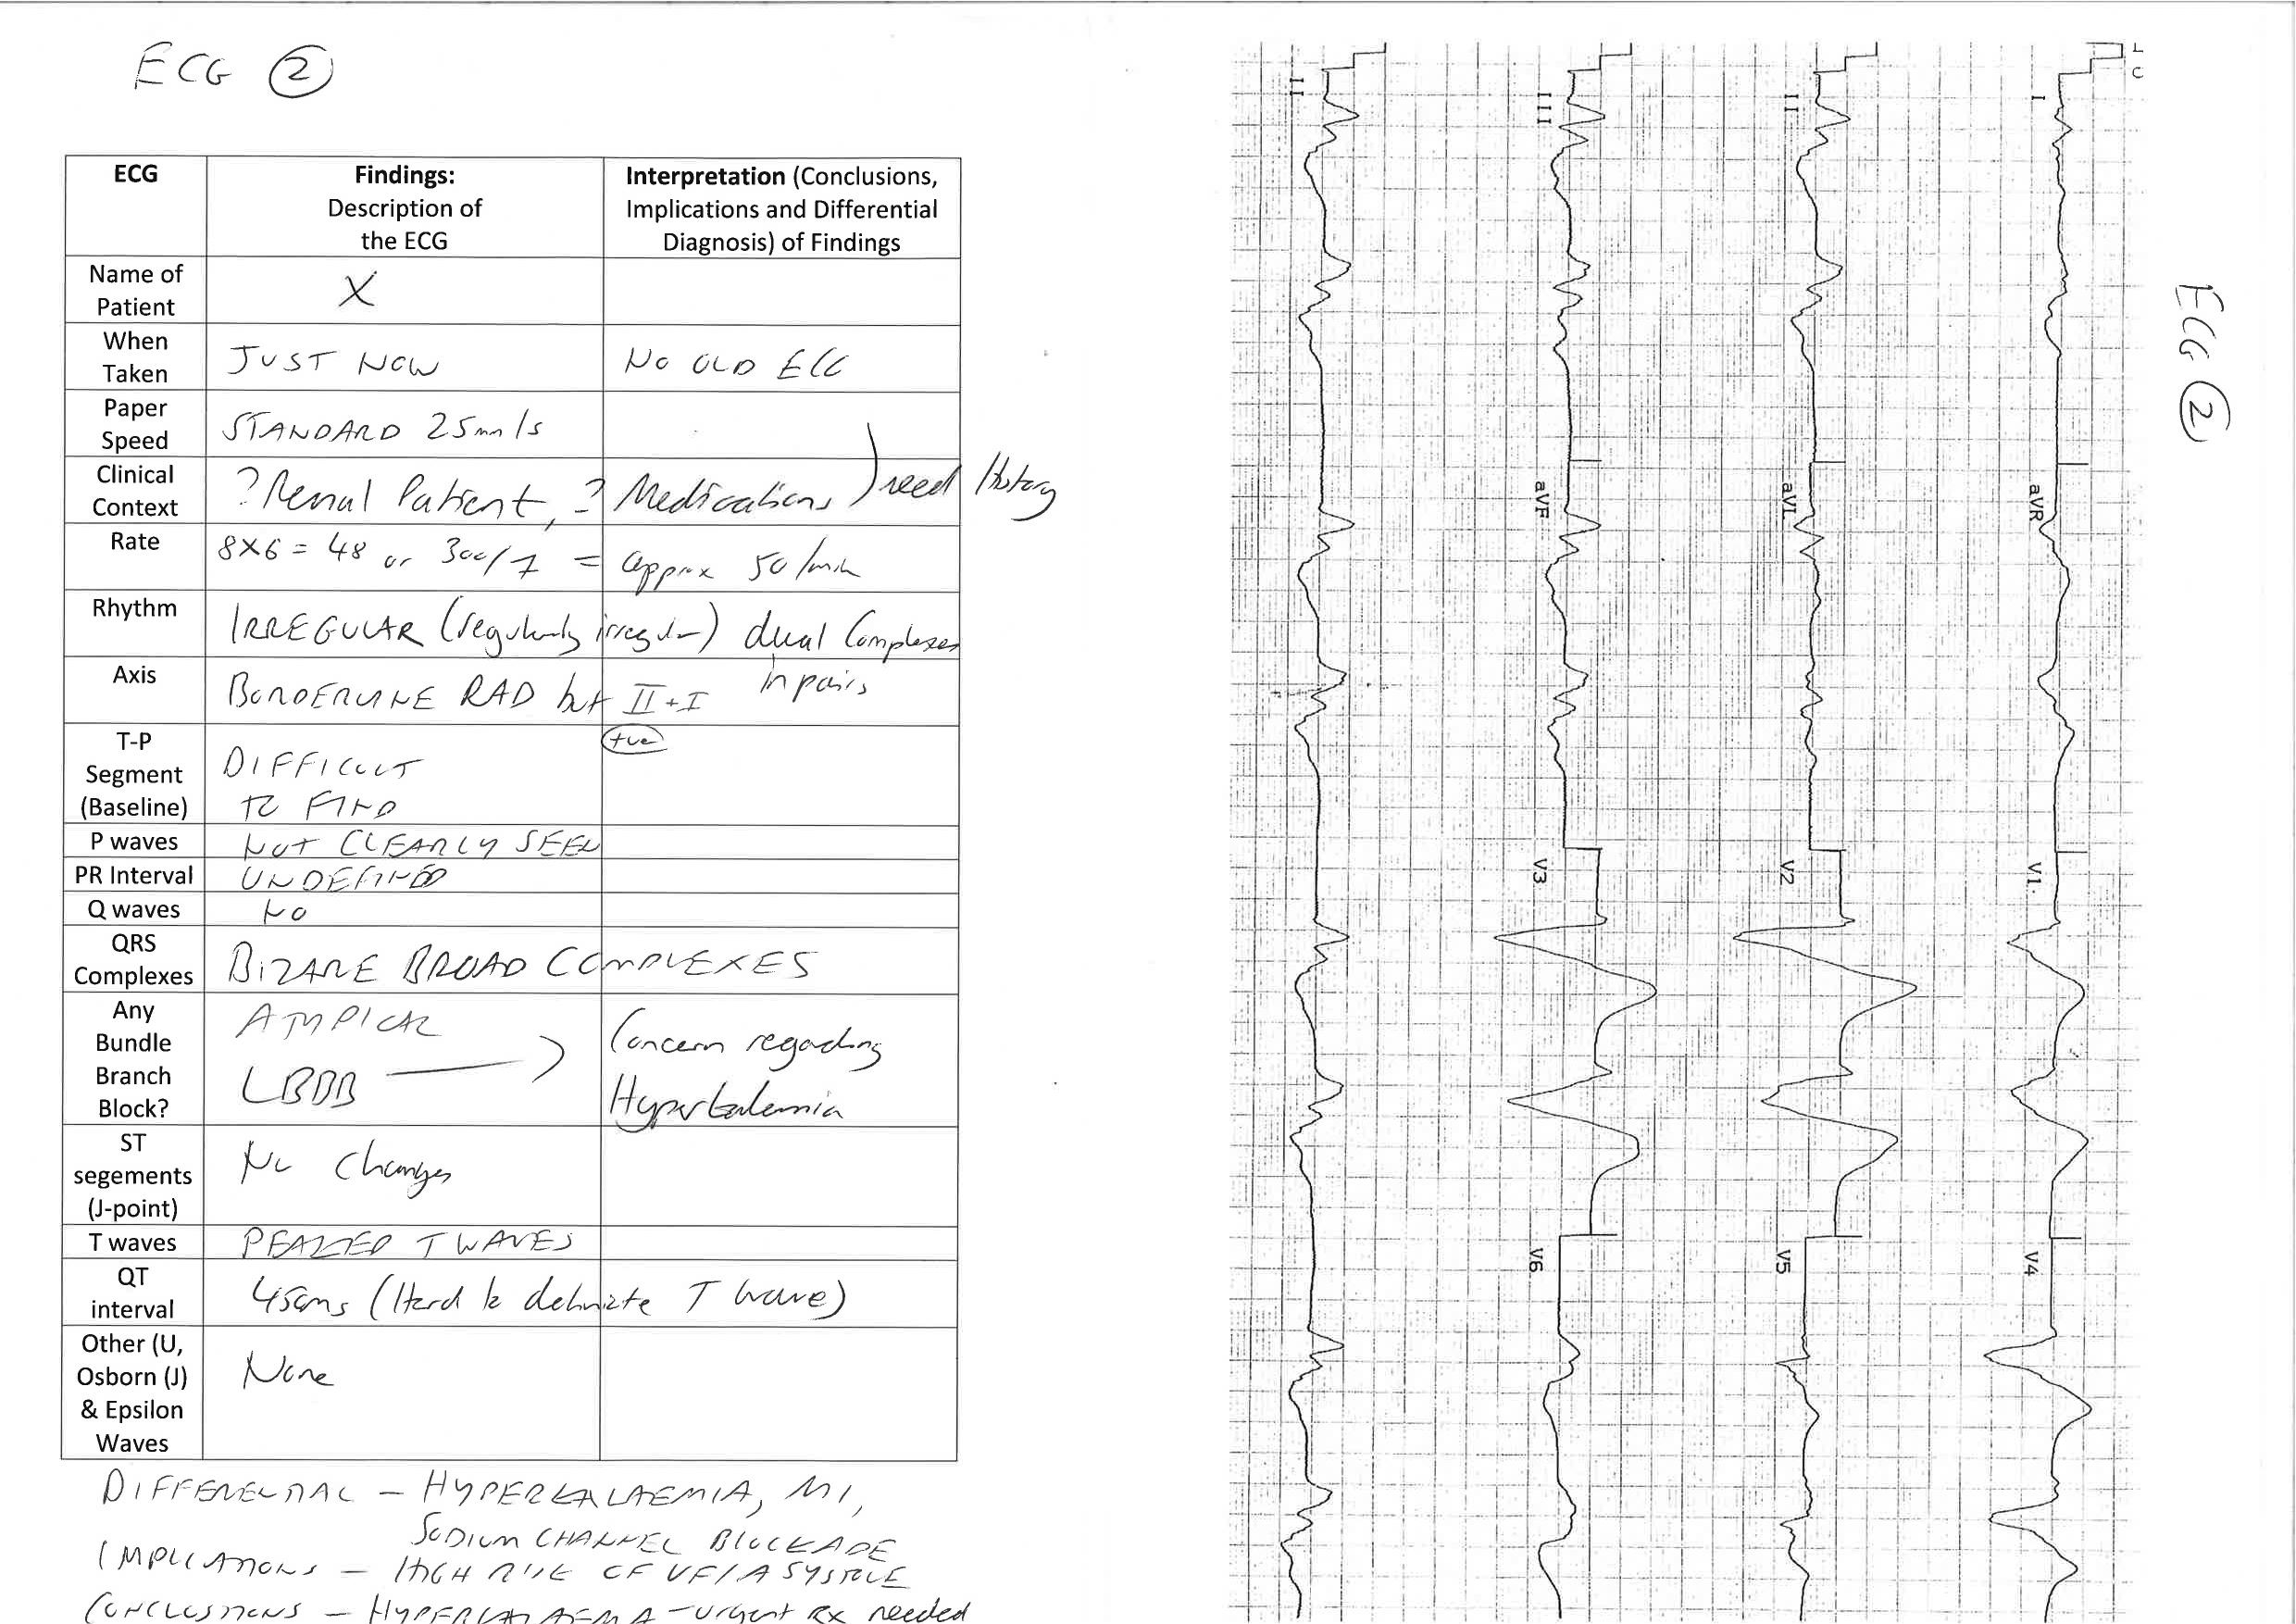 ECG ②
ECG
Findings:
Description of
the ECG
Interpretation (Conclusions,
Implications and Differential
Diagnosis) of Findings
Name of
Patient
X
When
Taken
JUST NOW
NO OLD ECG
Paper
Speed
STANDARD 25mm/s
Clinical
Context
? Renal Patient, ? Medications ) need History
Rate
8X6 = 48 or 300/7 = approx 50/min
Rhythm
IRREGULAR (regularly irregular) dual Complexes
in pairs
Axis
BORDERLINE RAD but II + I
+ve
T-P
Segment
(Baseline)
DIFFICULT
TO FIND
P waves
NOT CLEARLY SEEN
PR Interval
UNDEFINED
Q waves
NO
QRS
Complexes
BIZARE BROAD COMPLEXES
Any
Bundle
Branch
Block?
ATYPICAL
LBBB
Concern regarding
Hyperkalemia
ST
segements
(J-point)
No changes
T waves
PEAKED T WAVES
QT
interval
450ms (Hard to delineate T wave)
Other (U,
Osborn (J)
& Epsilon
Waves
None
DIFFERENTIAL – HYPERKALAEMIA, MI,
SODIUM CHANNEL BLOCKADE
IMPLICATIONS – HIGH RISK OF VF/ASYSTOLE
CONCLUSIONS – HYPERKALAEMIA – urgent Rx needed
ECG ②
L
C
I
aVR
V1
V4
II
aVL
V2
V5
III
aVF
V3
V6
II